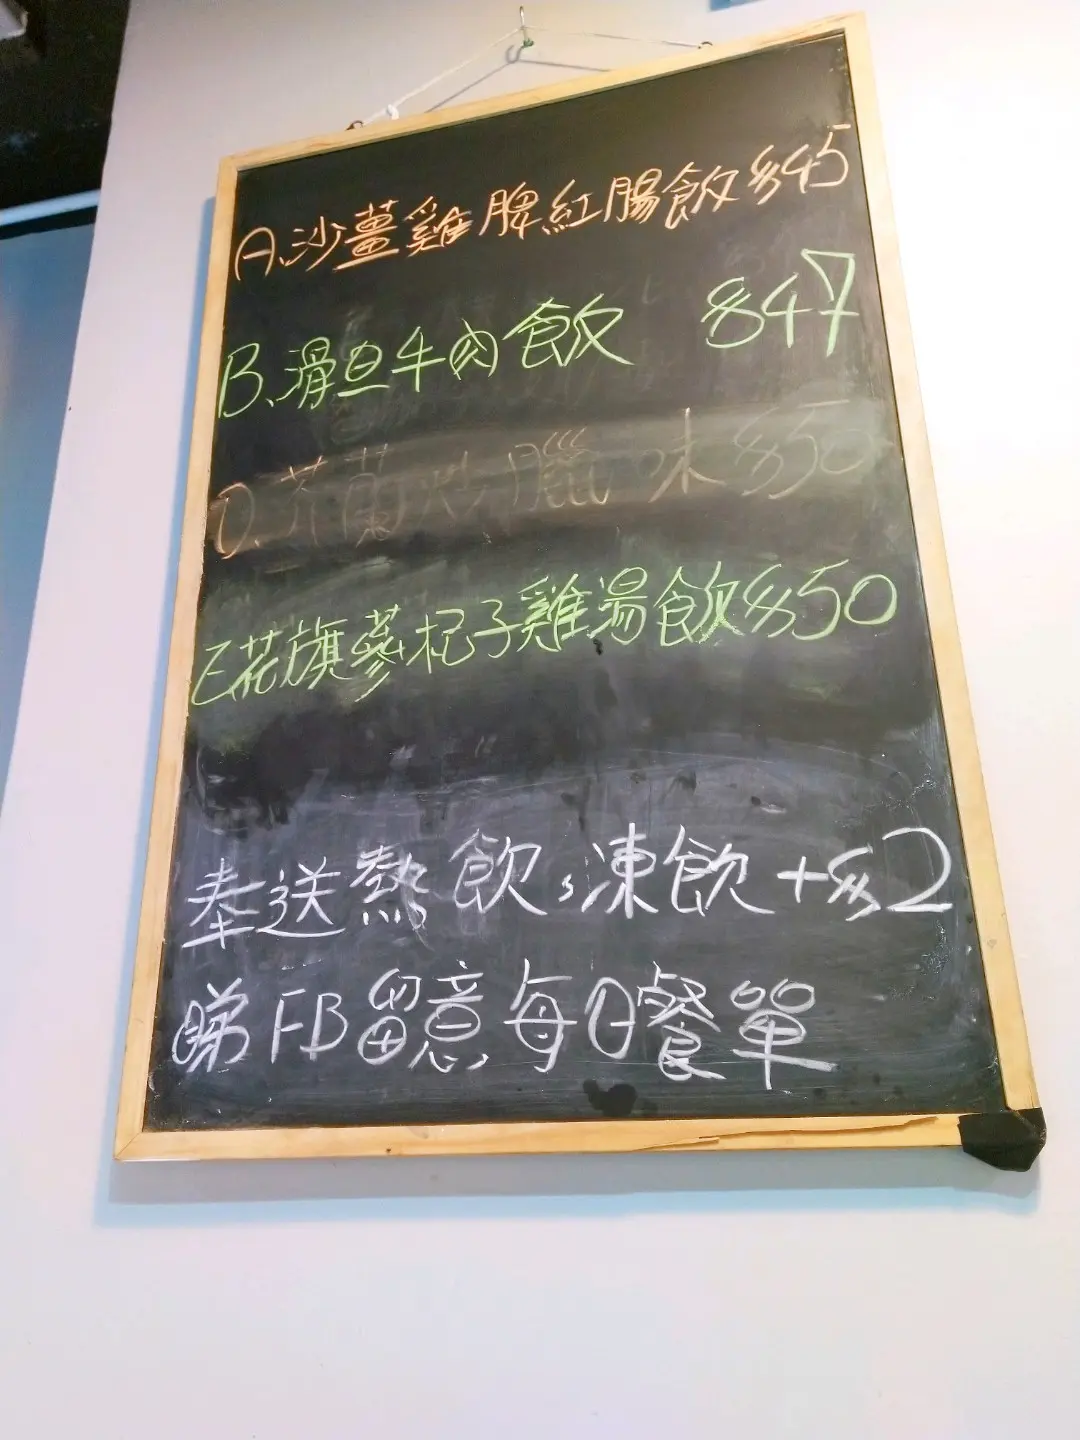 A.沙薑雞脾紅腸飯$45
B.滑旦牛肉飯 $47
D.芥蘭炒臘味$50
E花旗蔘杞子雞湯飯$50
奉送熱飲,凍飲+$2
睇FB留意每日餐單